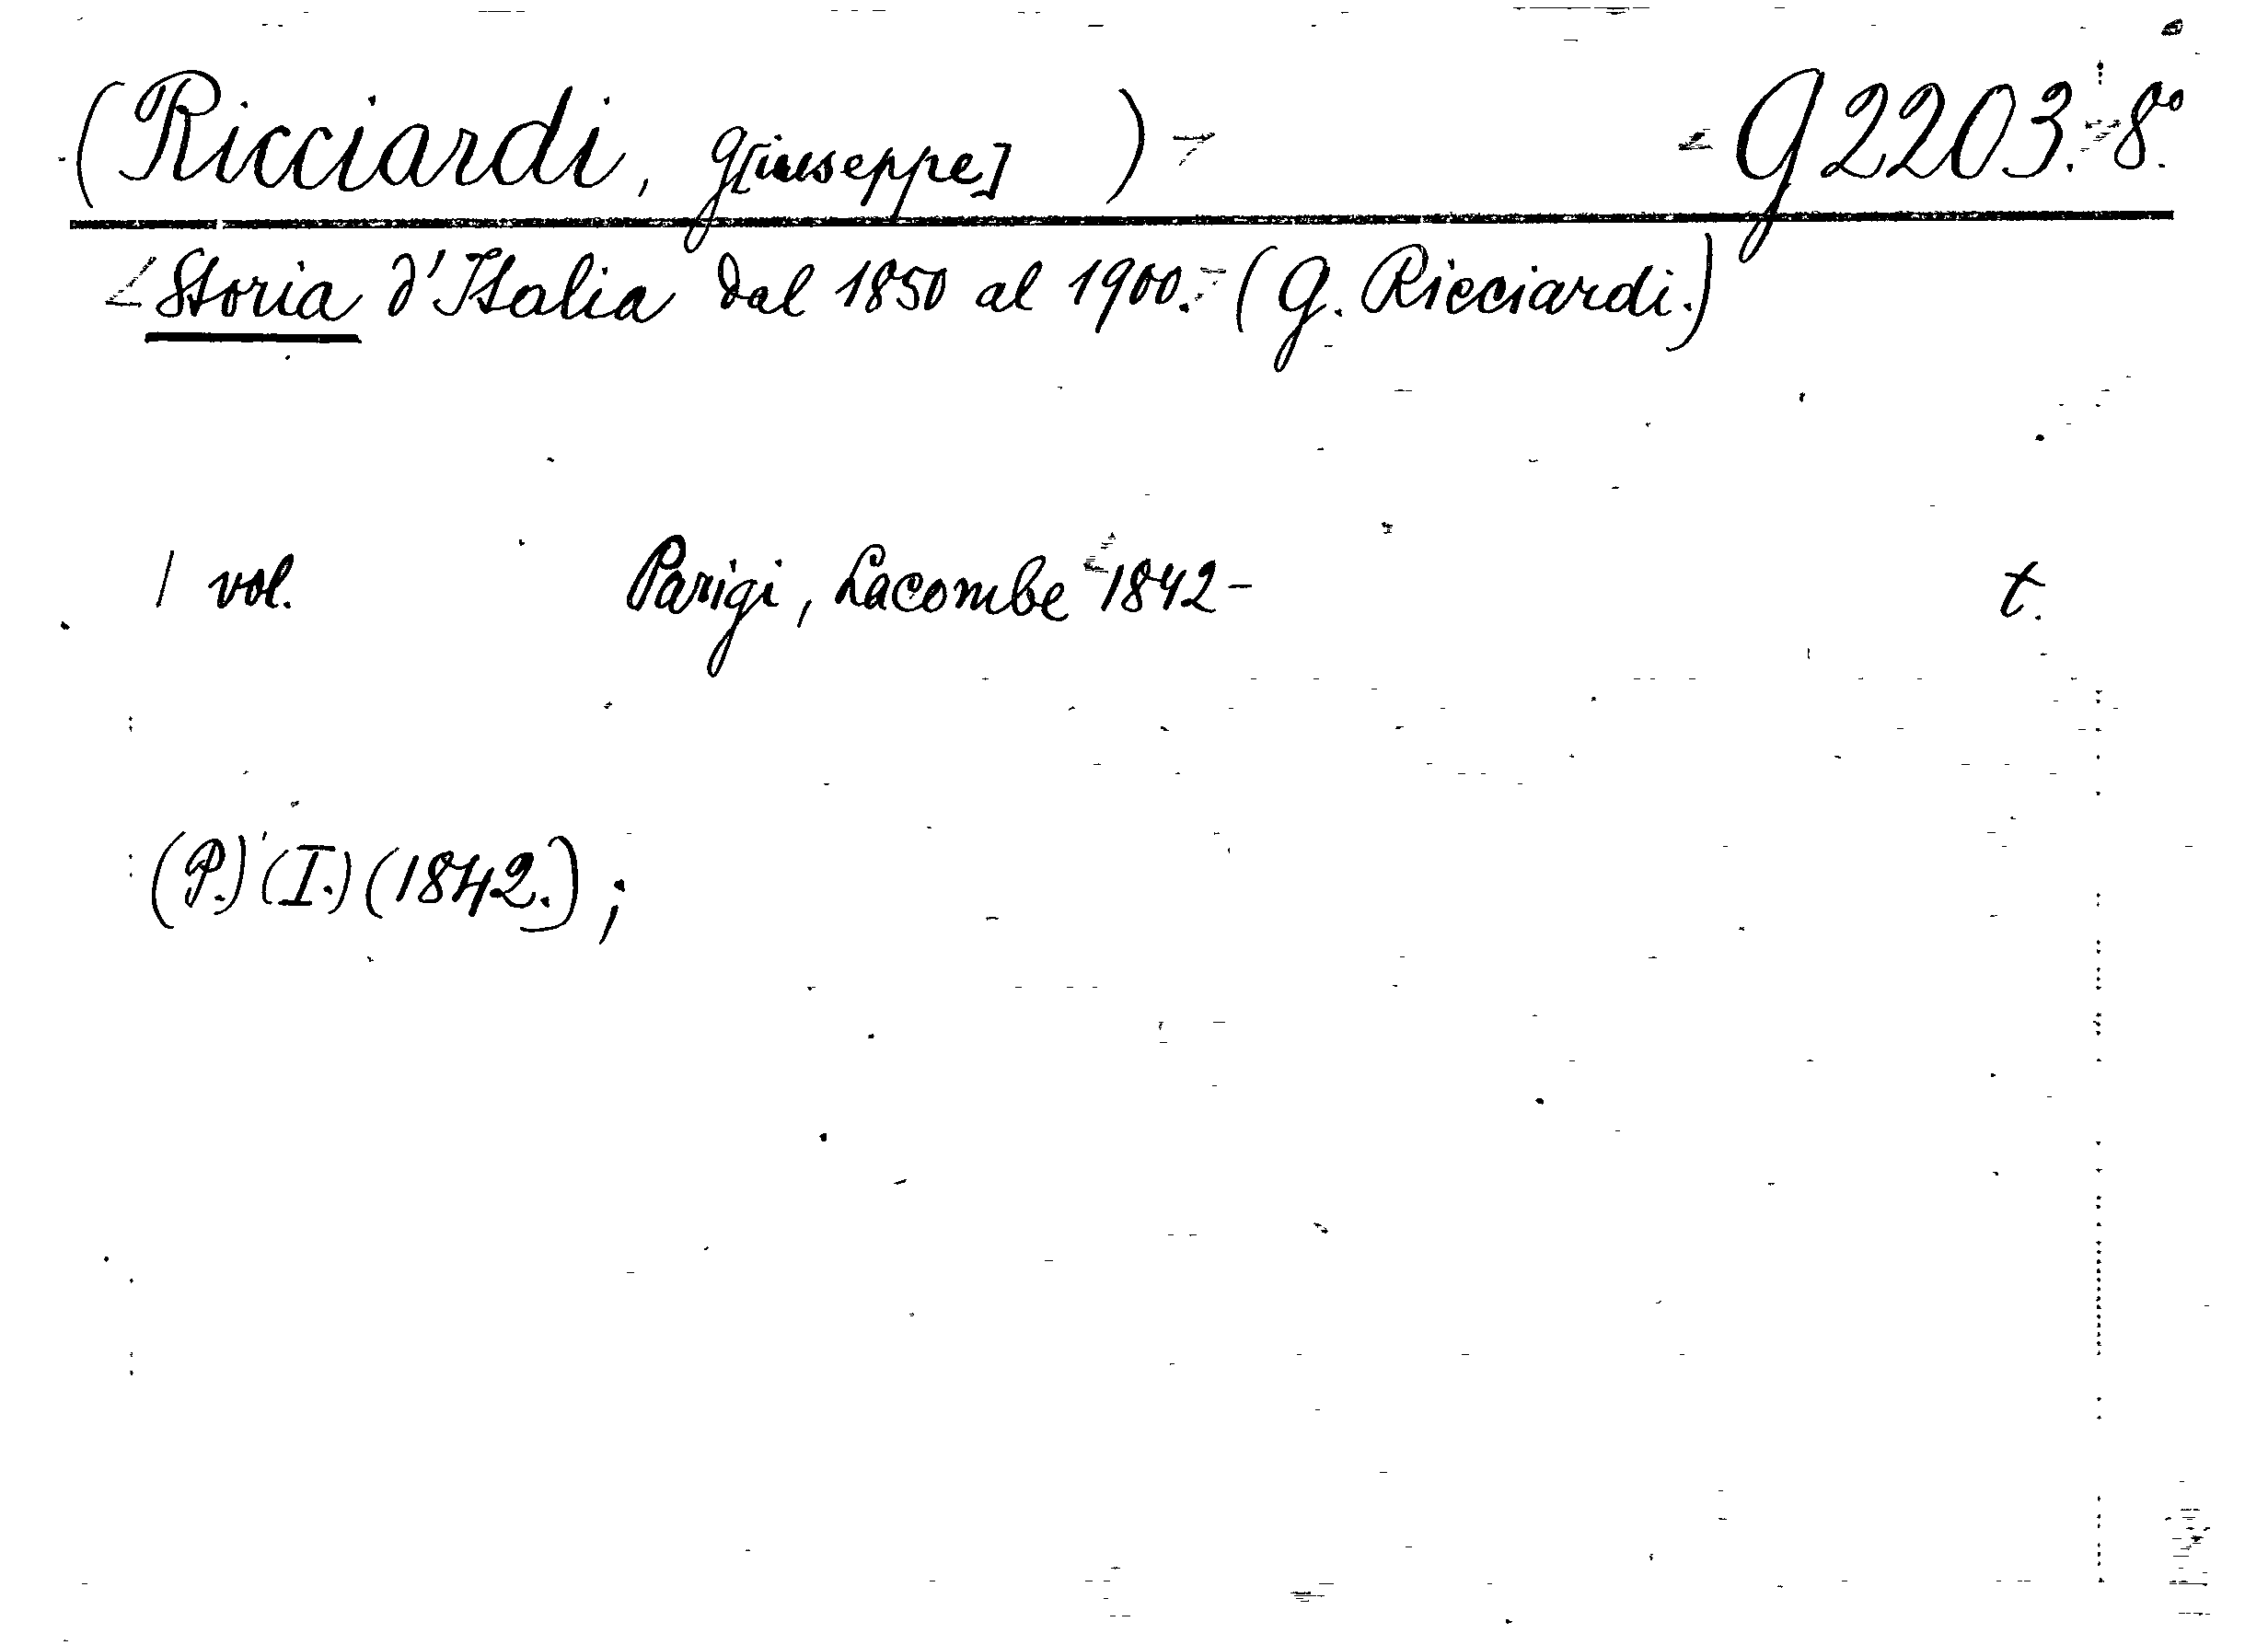 (Ricciardi, G[iuseppe] ) G 2203. 8º.
Storia d'Italia dal 1850 al 1900. (G. Ricciardi.)
1 vol. Parigi, Lacombe 1842- t.
(P.) (I.) (1842.) ;